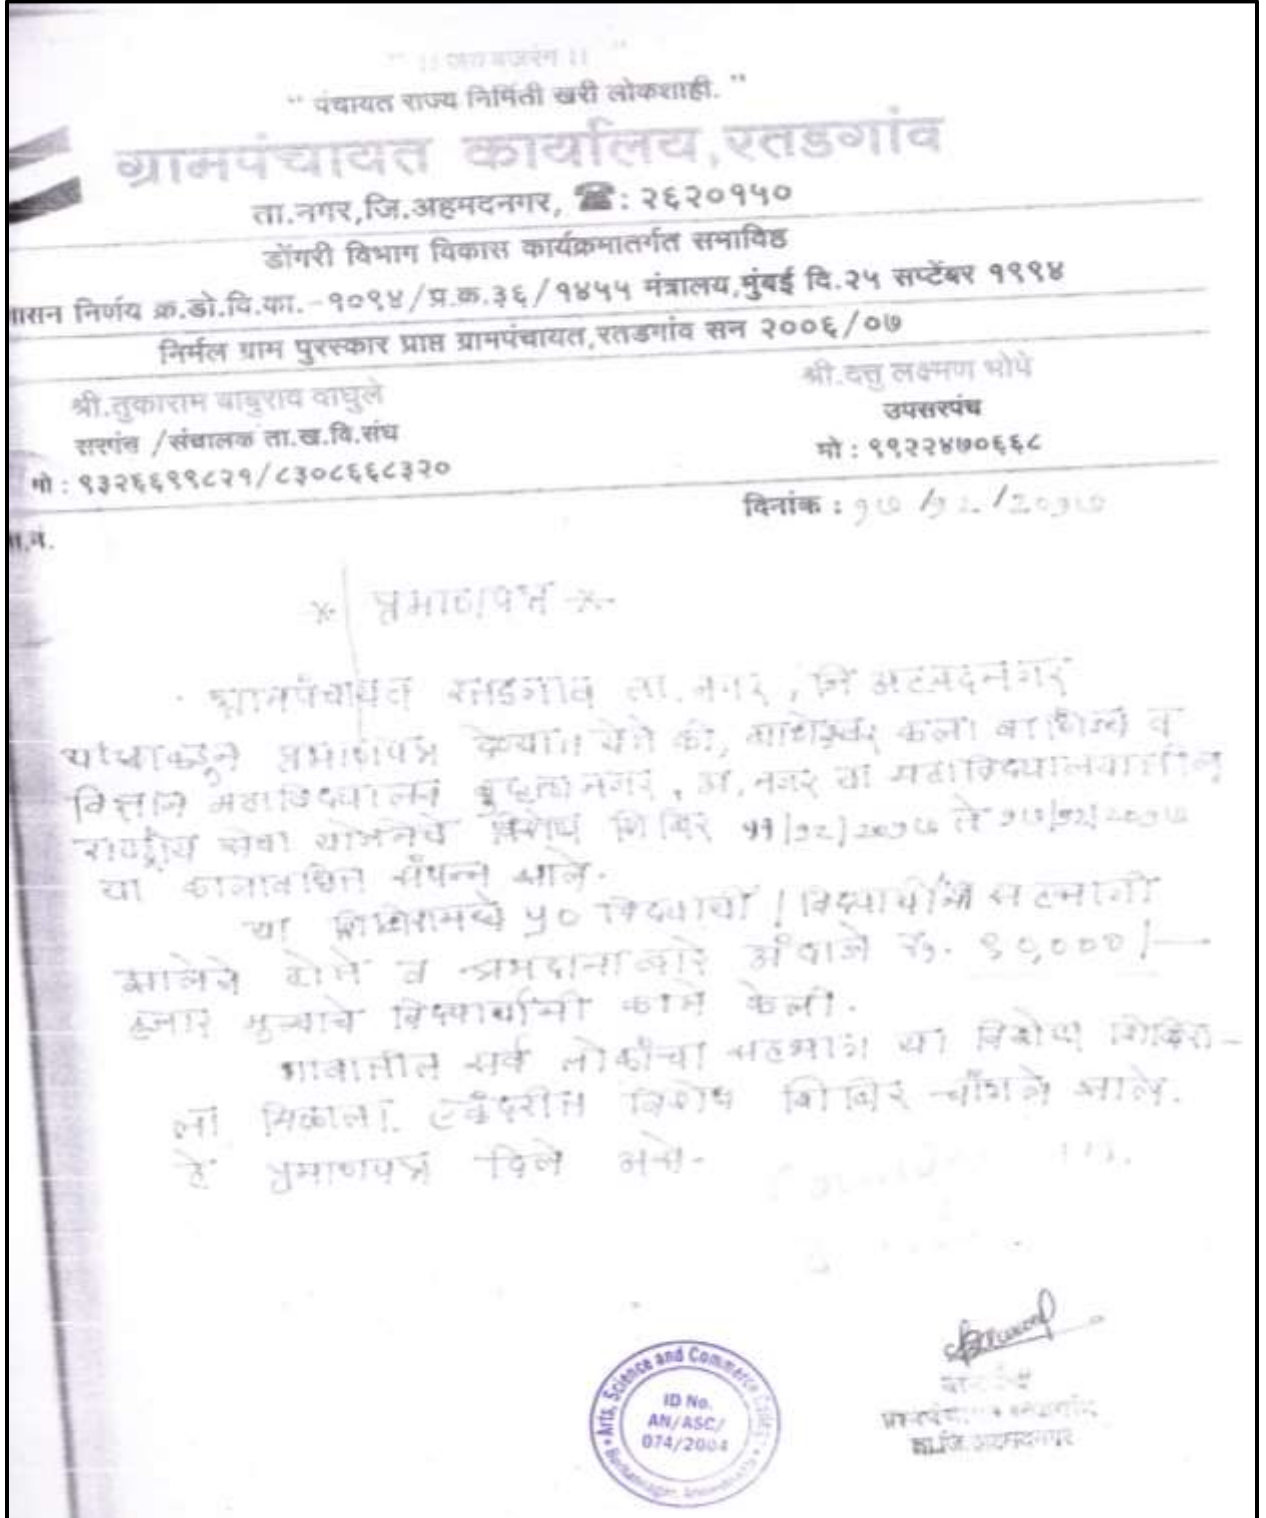 ।। जय बजरंग ।।
" पंचायत राज्य निर्मिती खरी लोकशाही. "
ग्रामपंचायत कार्यालय,रतडगांव
ता.नगर,जि.अहमदनगर, ☎: २६२०१५०
डोंगरी विभाग विकास कार्यक्रमातर्गत समाविष्ठ
ासन निर्णय क्र.डो.वि.का.-१०९४/प्र.क.३६/१४५५ मंत्रालय,मुंबई दि.२५ सप्टेंबर १९९४
निर्मल ग्राम पुरस्कार प्राप्त ग्रामपंचायत,रतडगांव सन २००६/०७
श्री.तुकाराम बाबुराव वाघुले
सरपंच /संचालक ता.ख.वि.संघ
मो : ९३२६६९९८२१/८३०८६६८३२०
श्री.दत्तु लक्ष्मण भोपे
उपसरपंच
मो : ९९२२४७०६६८
दिनांक : १७/१२/२०१७
ा.नं.
* प्रमाणपत्र *
ग्रामपंचायत रतडगाव ता.नगर, जि अहमदनगर
यांचाकडून प्रमाणपत्र देण्यात येते की, कला वाणिज्य व
विज्ञान महाविद्यालय , अ.नगर या महाविद्यालयातील
राष्ट्रीय सेवा योजनेचे विशेष शिबिर ११/१२/२०१७ ते १७/१२/२०१७
या कालावधित संपन्न झाले.
या शिबिरामध्ये ५० विद्यार्थी / विद्यार्थीनी सहभागी
झालेले होते व श्रमदानाव्दारे अंदाजे रु. ९०,०००/—
हजार मुल्याचे विद्यार्थांनी कामे केली.
गावातील सर्व लोकांचा सहभाग या विशेष शिबिरा-
ला मिळाला. एकंदरीत विशेष शिबिर चांगले झाले.
हे प्रमाणपत्र दिले असे.
Arts, Science and Commerce
ID No.
AN/ASC/
074/2004
ता.जि.अहमदनगर